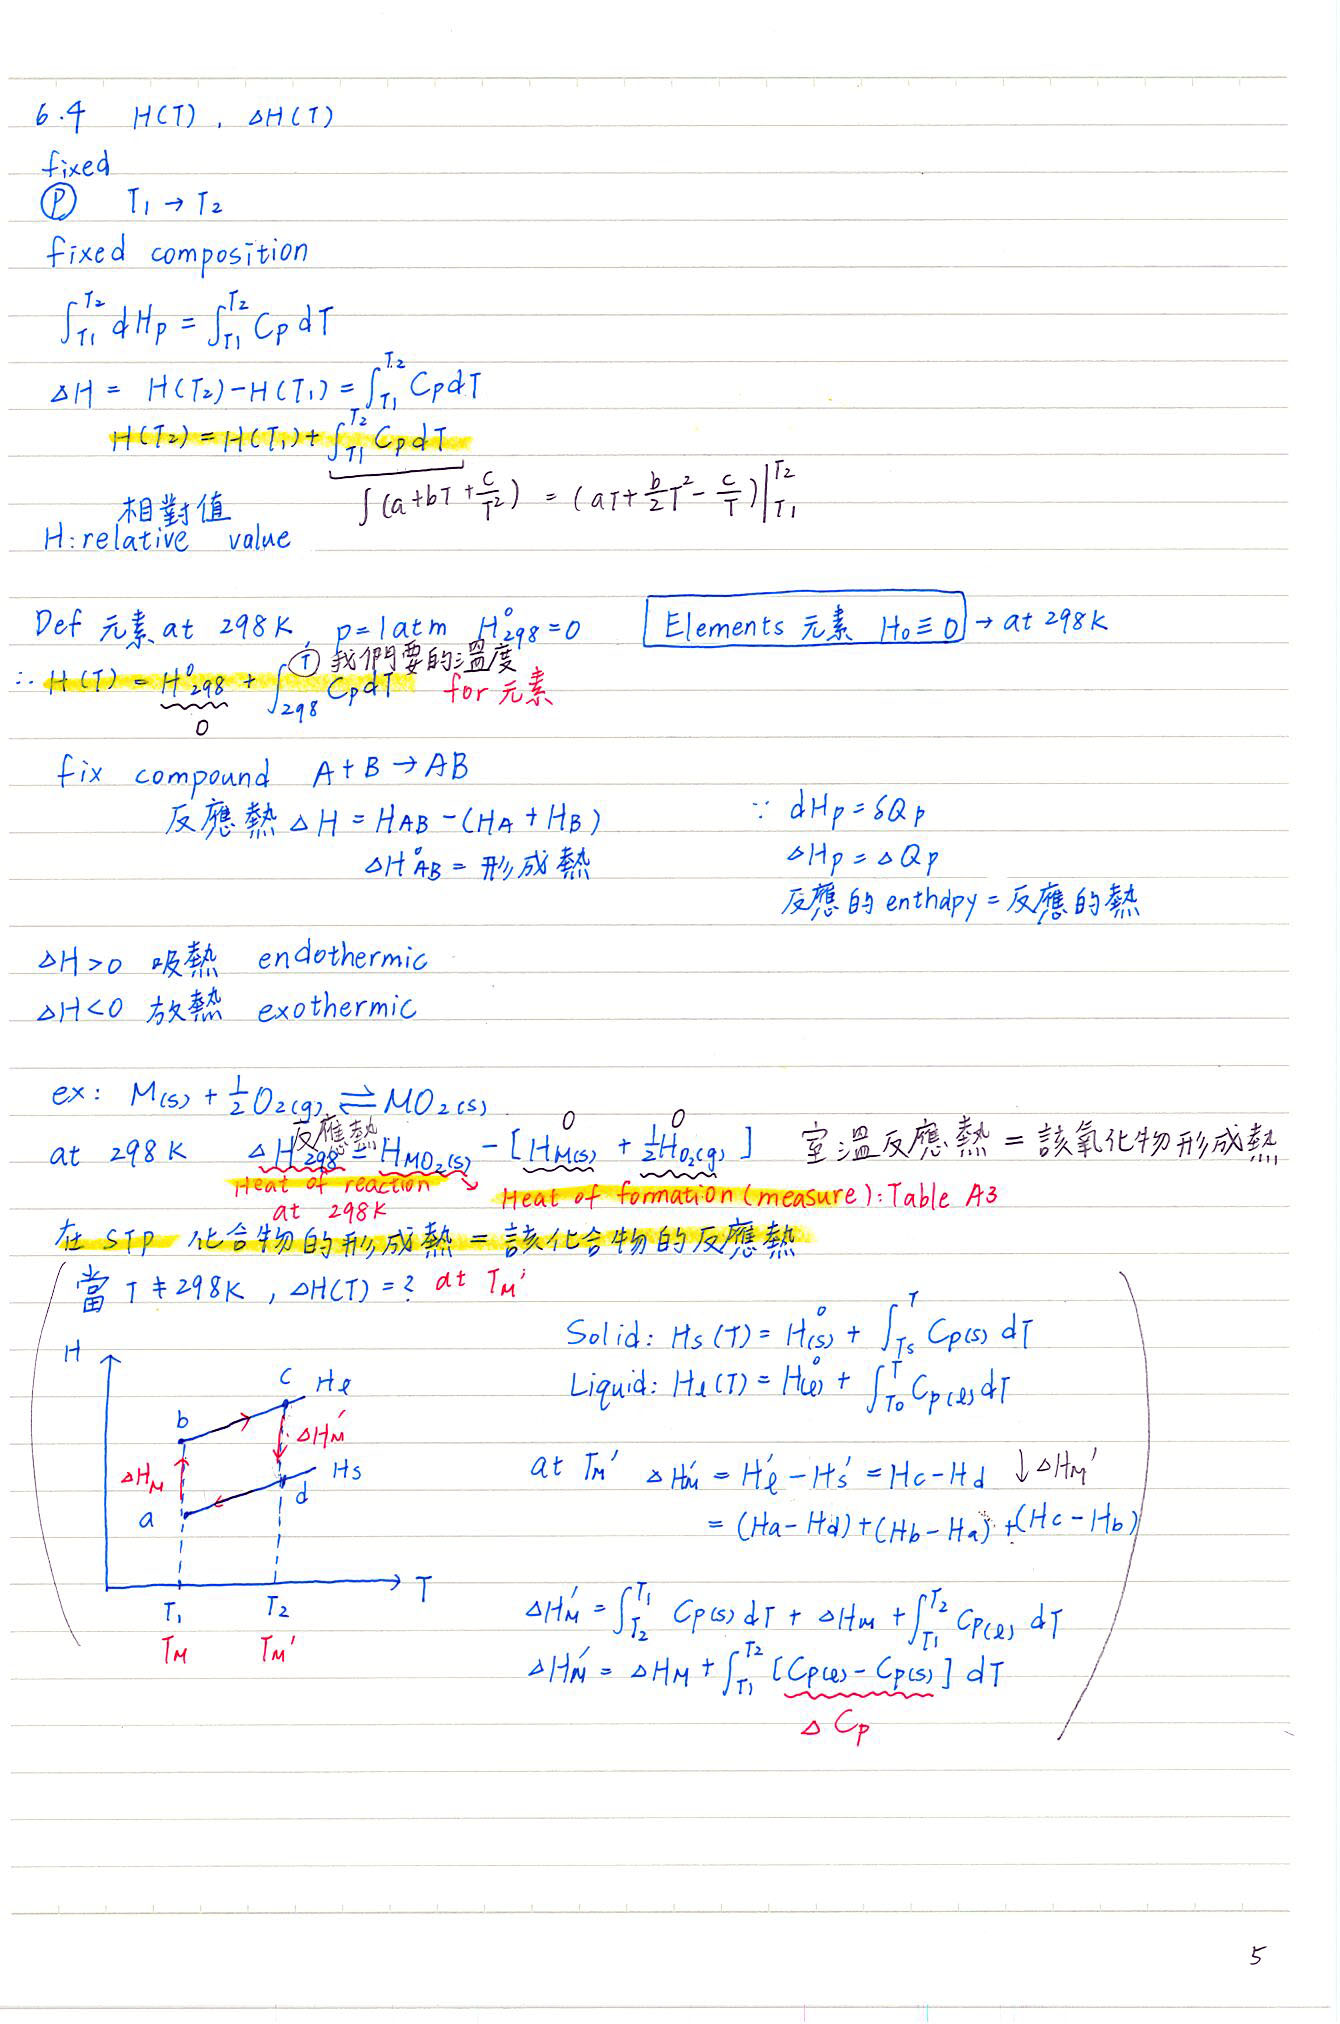 6.4 H(T), ΔH(T)
fixed
Ⓟ T₁ → T₂
fixed composition
∫_{T₁}^{T₂} dHp = ∫_{T₁}^{T₂} Cp dT
ΔH = H(T₂) − H(T₁) = ∫_{T₁}^{T₂} Cp dT
H(T₂) = H(T₁) + ∫_{T₁}^{T₂} Cp dT
∫(a+bT+c/T²) = (aT + b/2 T² − c/T)|_{T₁}^{T₂}
相對值
H: relative value
Def 元素 at 298K, p=1atm H°₂₉₈=0
Elements 元素 H₀ ≡ 0 → at 298K
∴ H(T) = H°₂₉₈ + ∫_{298}^{Ⓣ} Cp dT for 元素
我們要的溫度
0
fix compound A+B → AB
反應熱 ΔH = H_AB − (H_A + H_B)
ΔH°_AB = 形成熱
∵ dHp = δQp
ΔHp = ΔQp
反應的 enthapy = 反應的熱
ΔH>0 吸熱 endothermic
ΔH<0 放熱 exothermic
ex: M(s) + ½O₂(g) ⇌ MO₂(s)
反應熱 0 0
at 298K ΔH₂₉₈ = H_MO₂(s) − [H_M(s) + ½H_O₂(g)] 室溫反應熱 = 該氧化物形成熱
Heat of reaction at 298K
↘ Heat of formation (measure): Table A3
在 STP 化合物的形成熱 = 該化合物的反應熱
當 T ≠ 298K, ΔH(T) = ? at T_M'
H
c H_ℓ
b ΔH_M'
ΔH_M Hs
a d
T
T₁ T₂
T_M T_M'
Solid: Hs(T) = H°(s) + ∫_{Ts}^{T} Cp(s) dT
Liquid: H_ℓ(T) = H°(ℓ) + ∫_{T₀}^{T} Cp(ℓ) dT
at T_M' ΔH_M' = H_ℓ' − Hs' = Hc − Hd ↓ΔH_M'
= (Ha − Hd) + (Hb − Ha) + (Hc − Hb)
ΔH_M' = ∫_{T₂}^{T₁} Cp(s) dT + ΔH_M + ∫_{T₁}^{T₂} Cp(ℓ) dT
ΔH_M' = ΔH_M + ∫_{T₁}^{T₂} [Cp(ℓ) − Cp(s)] dT
ΔCp
5